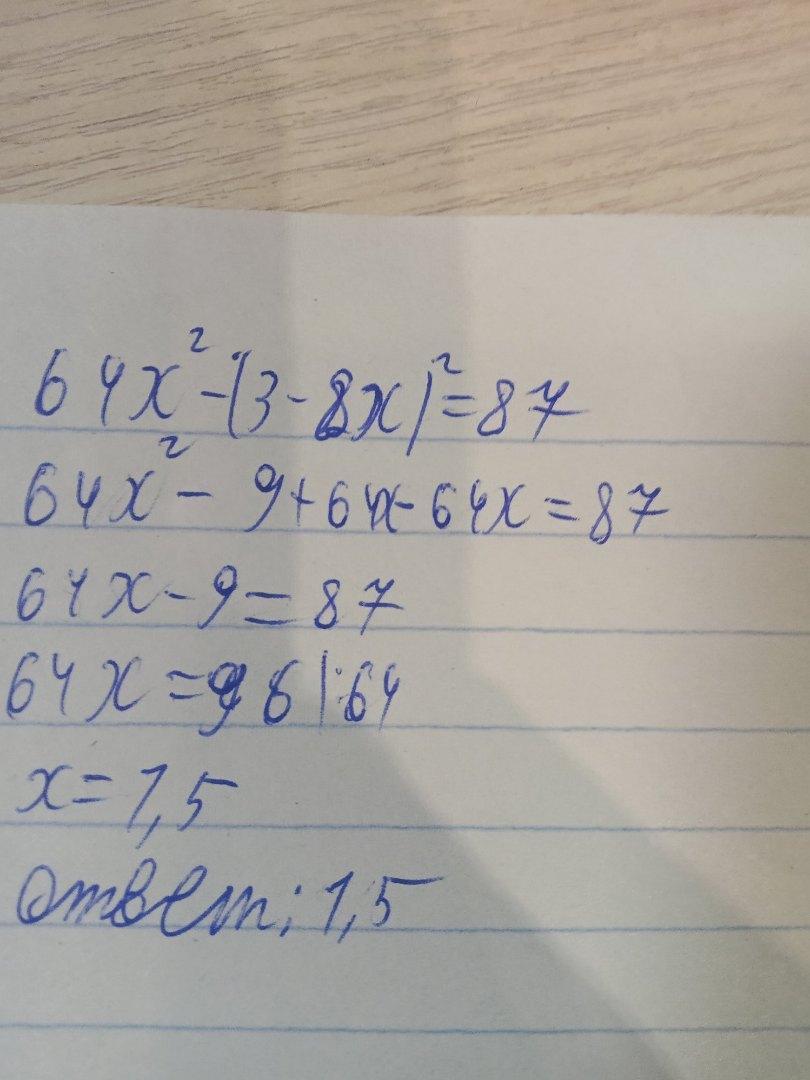 64x² - (3 - 8x)² = 87
64x² - 9 + 64x - 64x = 87
64x - 9 = 87
64x = 96 |:64
x = 1,5
Ответ: 1,5